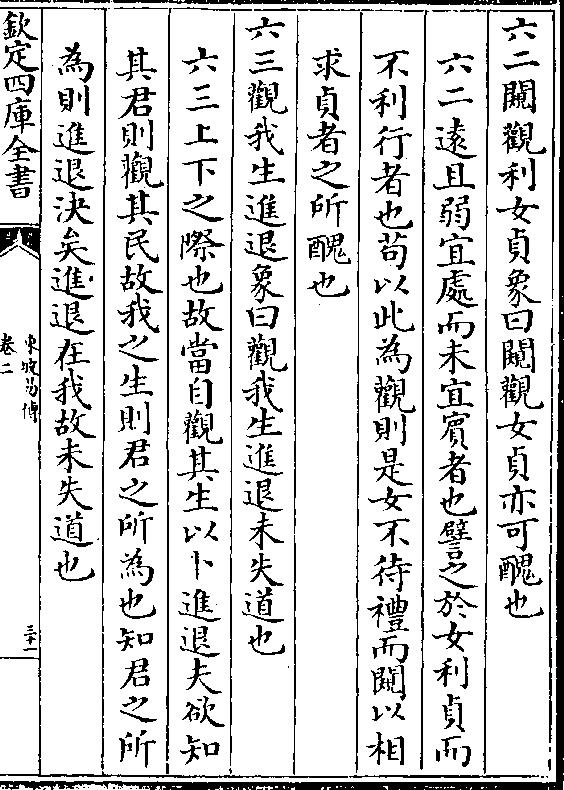 六二闚觀利女貞象曰闚觀女貞亦可醜也
六二遠且弱宜處而未宜賓者也譬之於女利貞而
不利行者也茍以此為觀則是女不待禮而闚以相
求貞者之所醜也
六三觀我生進退象曰觀我生進退未失道也
六三上下之際也故當自觀其生以卜進退夫欲知
其君則觀其民故我之生則君之所為也知君之所
為則進退決矣進退在我故未失道也
欽定四庫全書
東坡易傳
卷二
三十一